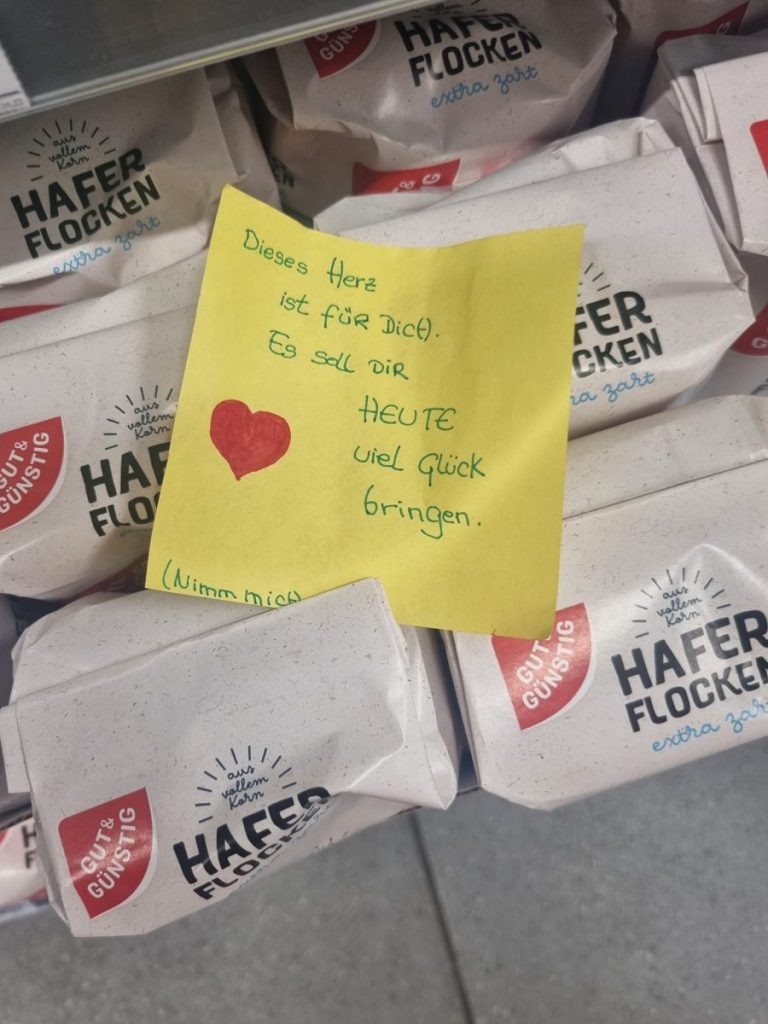 GUT&
GÜNSTIG
HAFER
FLOCKEN
extra zart
aus
vollem
Korn
HAFER
FLOCKEN
extra zart
GUT&
GÜNSTIG
Dieses Herz
ist für Dich.
Es soll Dir
HEUTE
viel Glück
bringen.
(Nimm mich)
FER
OCKEN
ra zart
GUT&
GÜNSTIG
aus
vollem
Korn
HAF
FLOC
GUT&
GÜNSTIG
aus
vollem
Korn
HAFER
FLOCKEN
extra zart
GUT&
GÜNSTIG
aus
vollem
Korn
HAFER
FLOCKEN